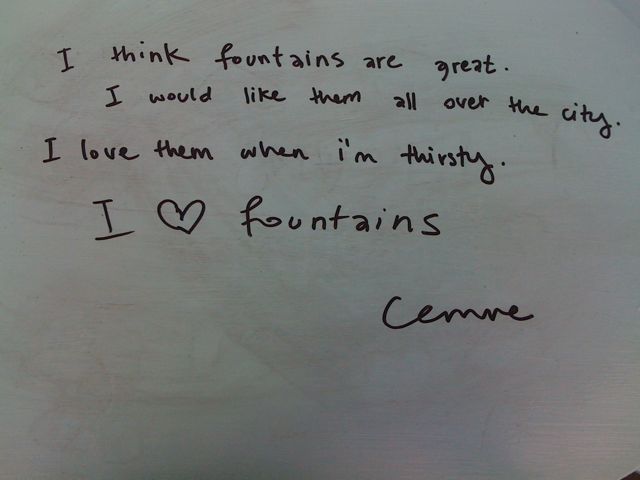 I think fountains are great.
I would like them all over the city.
I love them when i'm thirsty.
I ♡ fountains
Cemre